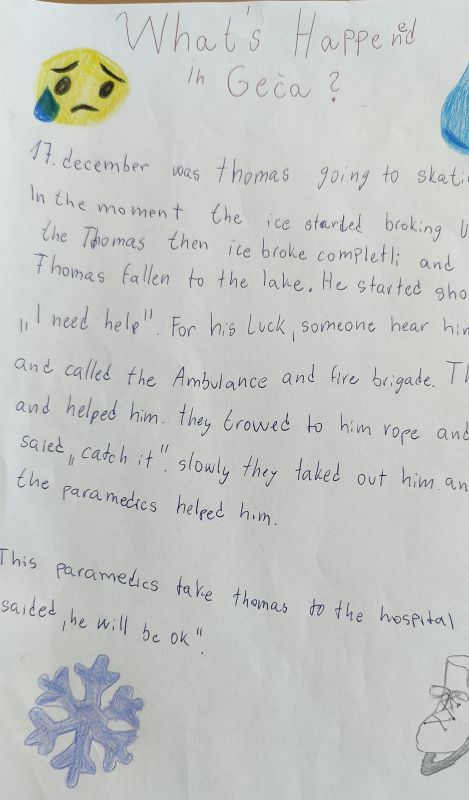 What's Happened
in Geča?
17. december was thomas going to skati
In the moment the ice started broking U
the Thomas then ice broke completli and
Thomas fallen to the lake. He started sho
„I need help". For his Luck, someone hear him
and called the Ambulance and fire brigade. Th
and helped him. they trowed to him rope and
saied„ catch it". slowly they taked out him. an
the paramedics helped him.
This paramedics take thomas to the hospital
saided „he will be ok".